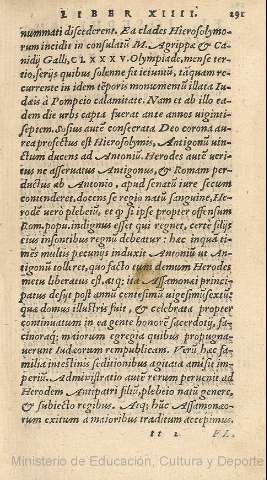 LIBER XIIII. 291
nummati discederent. Ea clades Hierosolymo-
rum incidit in consulatū M. Agrippæ & Ca-
nidij Galli, CLXXXV. Olympiade, mense ter-
tio, serijs quibus solenne sit ieiuniū, tāquam re-
currente in idem tēporis monumentū illata Iu-
dæis à Pompeio calamitate. Nam et ab illo ea-
dem die urbs capta fuerat ante annos uiginti-
septem. Sosius autē consecrata Deo corona au-
rea profectus est Hierosolymis, Antigonū uin-
ctum ducens ad Antoniū. Herodes autē veri-
tus ne asseruatus Antigonus, & Romam per-
ductus ab Antonio, apud senatū iure secum
contenderet, docens se regio natū sanguine, He-
rodē uero plebeiū, et q̃ si ipse propter offensum
Rom. popu. indignus esset qui regnet, certè filijs
eius insontibus regnū debeatur: hac inqua ti-
mēs multis pecunijs induxit Antoniū ut An-
tigonū tolleret, quo facto tum demum Herodes
metu liberatus est, atq; ita Assamonæi princi-
patus desijt post annū centesimū uigesimūsextū:
quæ domus illustris fuit, & celebrata propter
continuatum in ea gente honorē sacerdotij, fa-
cinoraq; maiorum egregia quibus propugna-
uerunt Iudæorum rempublicam. Verū hæc fa-
milia intestinis seditionibus agitata amisit im-
perium. Administratio autē rerum peruenit ad
Herodem Antipatri filiū, plebeio natū genere,
& subiecto regibus. Atq; hūc Assamonæo-
rum exitum a maioribus traditum accepimus.
tt 2 FL.
Ministerio de Educación, Cultura y Deporte